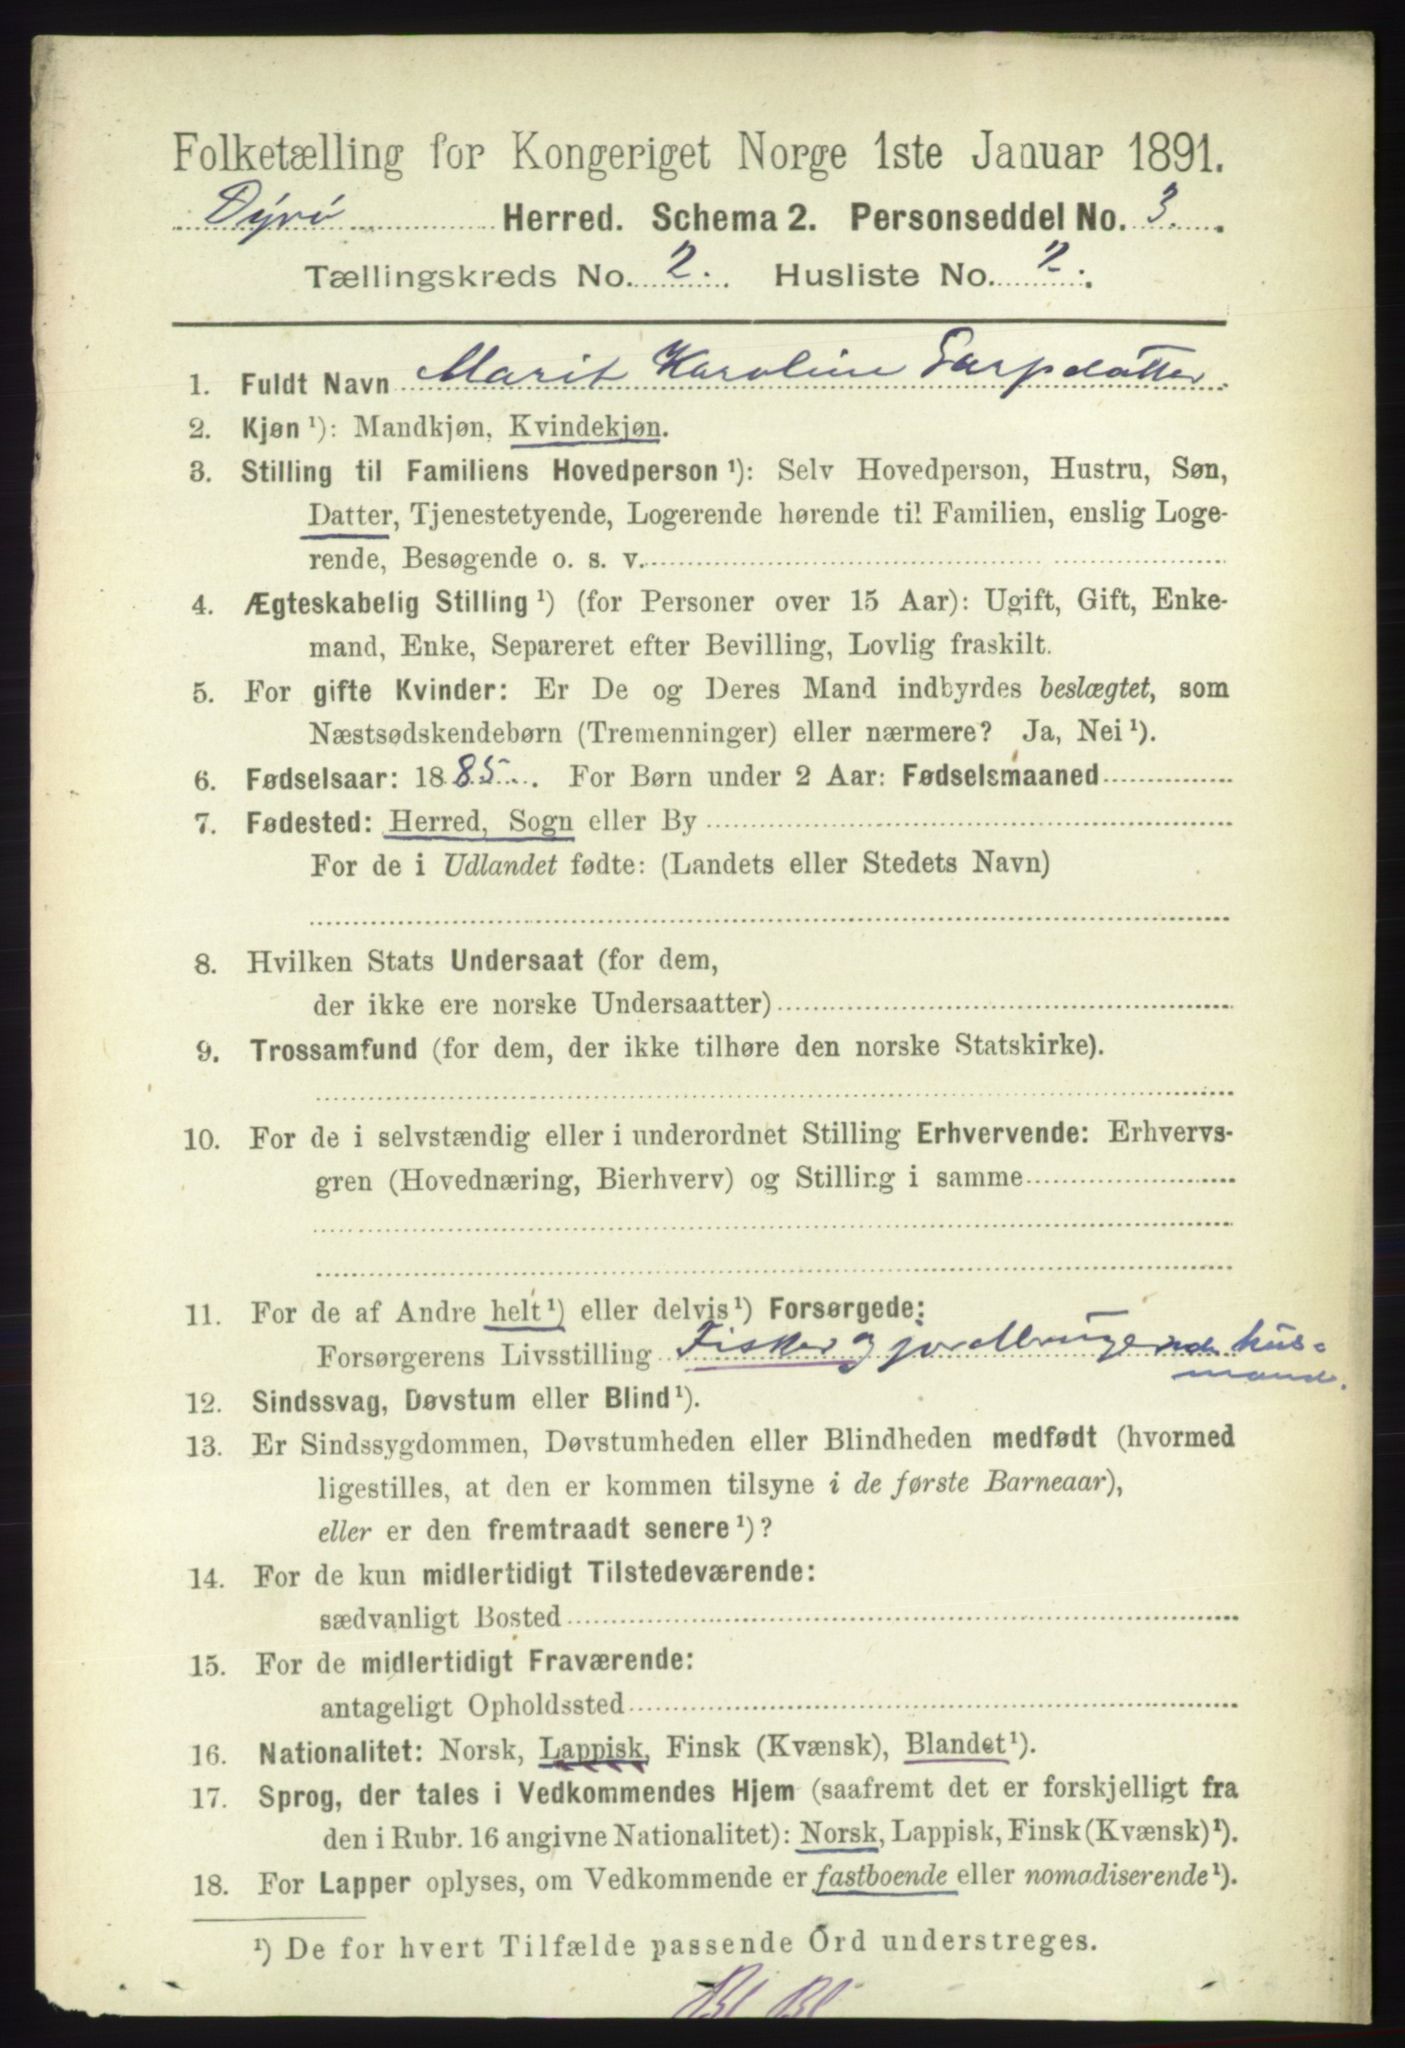 Folketælling for Kongeriget Norge 1ste Januar 1891.
Dyrö Herred. Schema 2. Personseddel No. 3.
Tællingskreds No. 2. Husliste No. 2.
1. Fuldt Navn Marit Karoline Larsdatter
2. Kjøn ¹): Mandkjøn, Kvindekjøn.
3. Stilling til Familiens Hovedperson ¹): Selv Hovedperson, Hustru, Søn,
Datter, Tjenestetyende, Logerende hørende til Familien, enslig Loge-
rende, Besøgende o. s. v.
4. Ægteskabelig Stilling ¹) (for Personer over 15 Aar): Ugift, Gift, Enke-
mand, Enke, Separeret efter Bevilling, Lovlig fraskilt.
5. For gifte Kvinder: Er De og Deres Mand indbyrdes beslægtet, som
Næstsødskendebørn (Tremenninger) eller nærmere? Ja, Nei ¹).
6. Fødselsaar: 1885. For Børn under 2 Aar: Fødselsmaaned
7. Fødested: Herred, Sogn eller By
For de i Udlandet fødte: (Landets eller Stedets Navn)
8. Hvilken Stats Undersaat (for dem,
der ikke ere norske Undersaatter)
9. Trossamfund (for dem, der ikke tilhøre den norske Statskirke).
10. For de i selvstændig eller i underordnet Stilling Erhvervende: Erhvervs-
gren (Hovednæring, Bierhverv) og Stilling i samme
11. For de af Andre helt ¹) eller delvis ¹) Forsørgede:
Forsørgerens Livsstilling Fisker og jordbrugende hus-
mand.
12. Sindssvag, Døvstum eller Blind ¹).
13. Er Sindssygdommen, Døvstumheden eller Blindheden medfødt (hvormed
ligestilles, at den er kommen tilsyne i de første Barneaar),
eller er den fremtraadt senere ¹)?
14. For de kun midlertidigt Tilstedeværende:
sædvanligt Bosted
15. For de midlertidigt Fraværende:
antageligt Opholdssted
16. Nationalitet: Norsk, Lappisk, Finsk (Kvænsk), Blandet ¹).
17. Sprog, der tales i Vedkommendes Hjem (saafremt det er forskjelligt fra
den i Rubr. 16 angivne Nationalitet): Norsk, Lappisk, Finsk (Kvænsk) ¹).
18. For Lapper oplyses, om Vedkommende er fastboende eller nomadiserende ¹).
¹) De for hvert Tilfælde passende Ord understreges.
Bl Bl